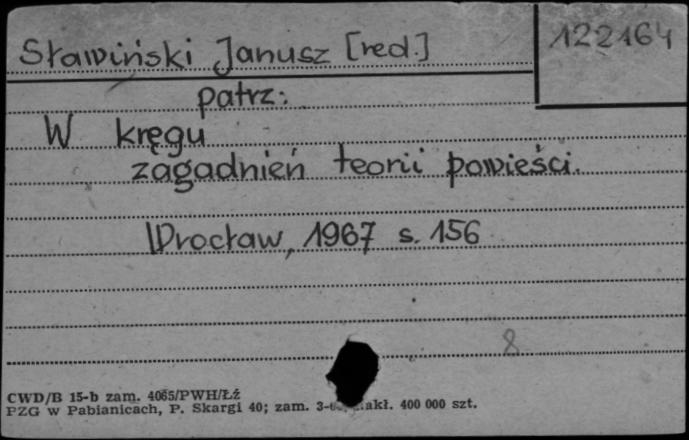 Sławiński Janusz [red.]
122164
patrz:
W kręgu
zagadnień teorii powieści.
Wrocław, 1967 s. 156
8
CWD/B 15-b zam. 4065/PWH/Łź
PZG w Pabianicach, P. Skargi 40; zam. akł. 400 000 szt.